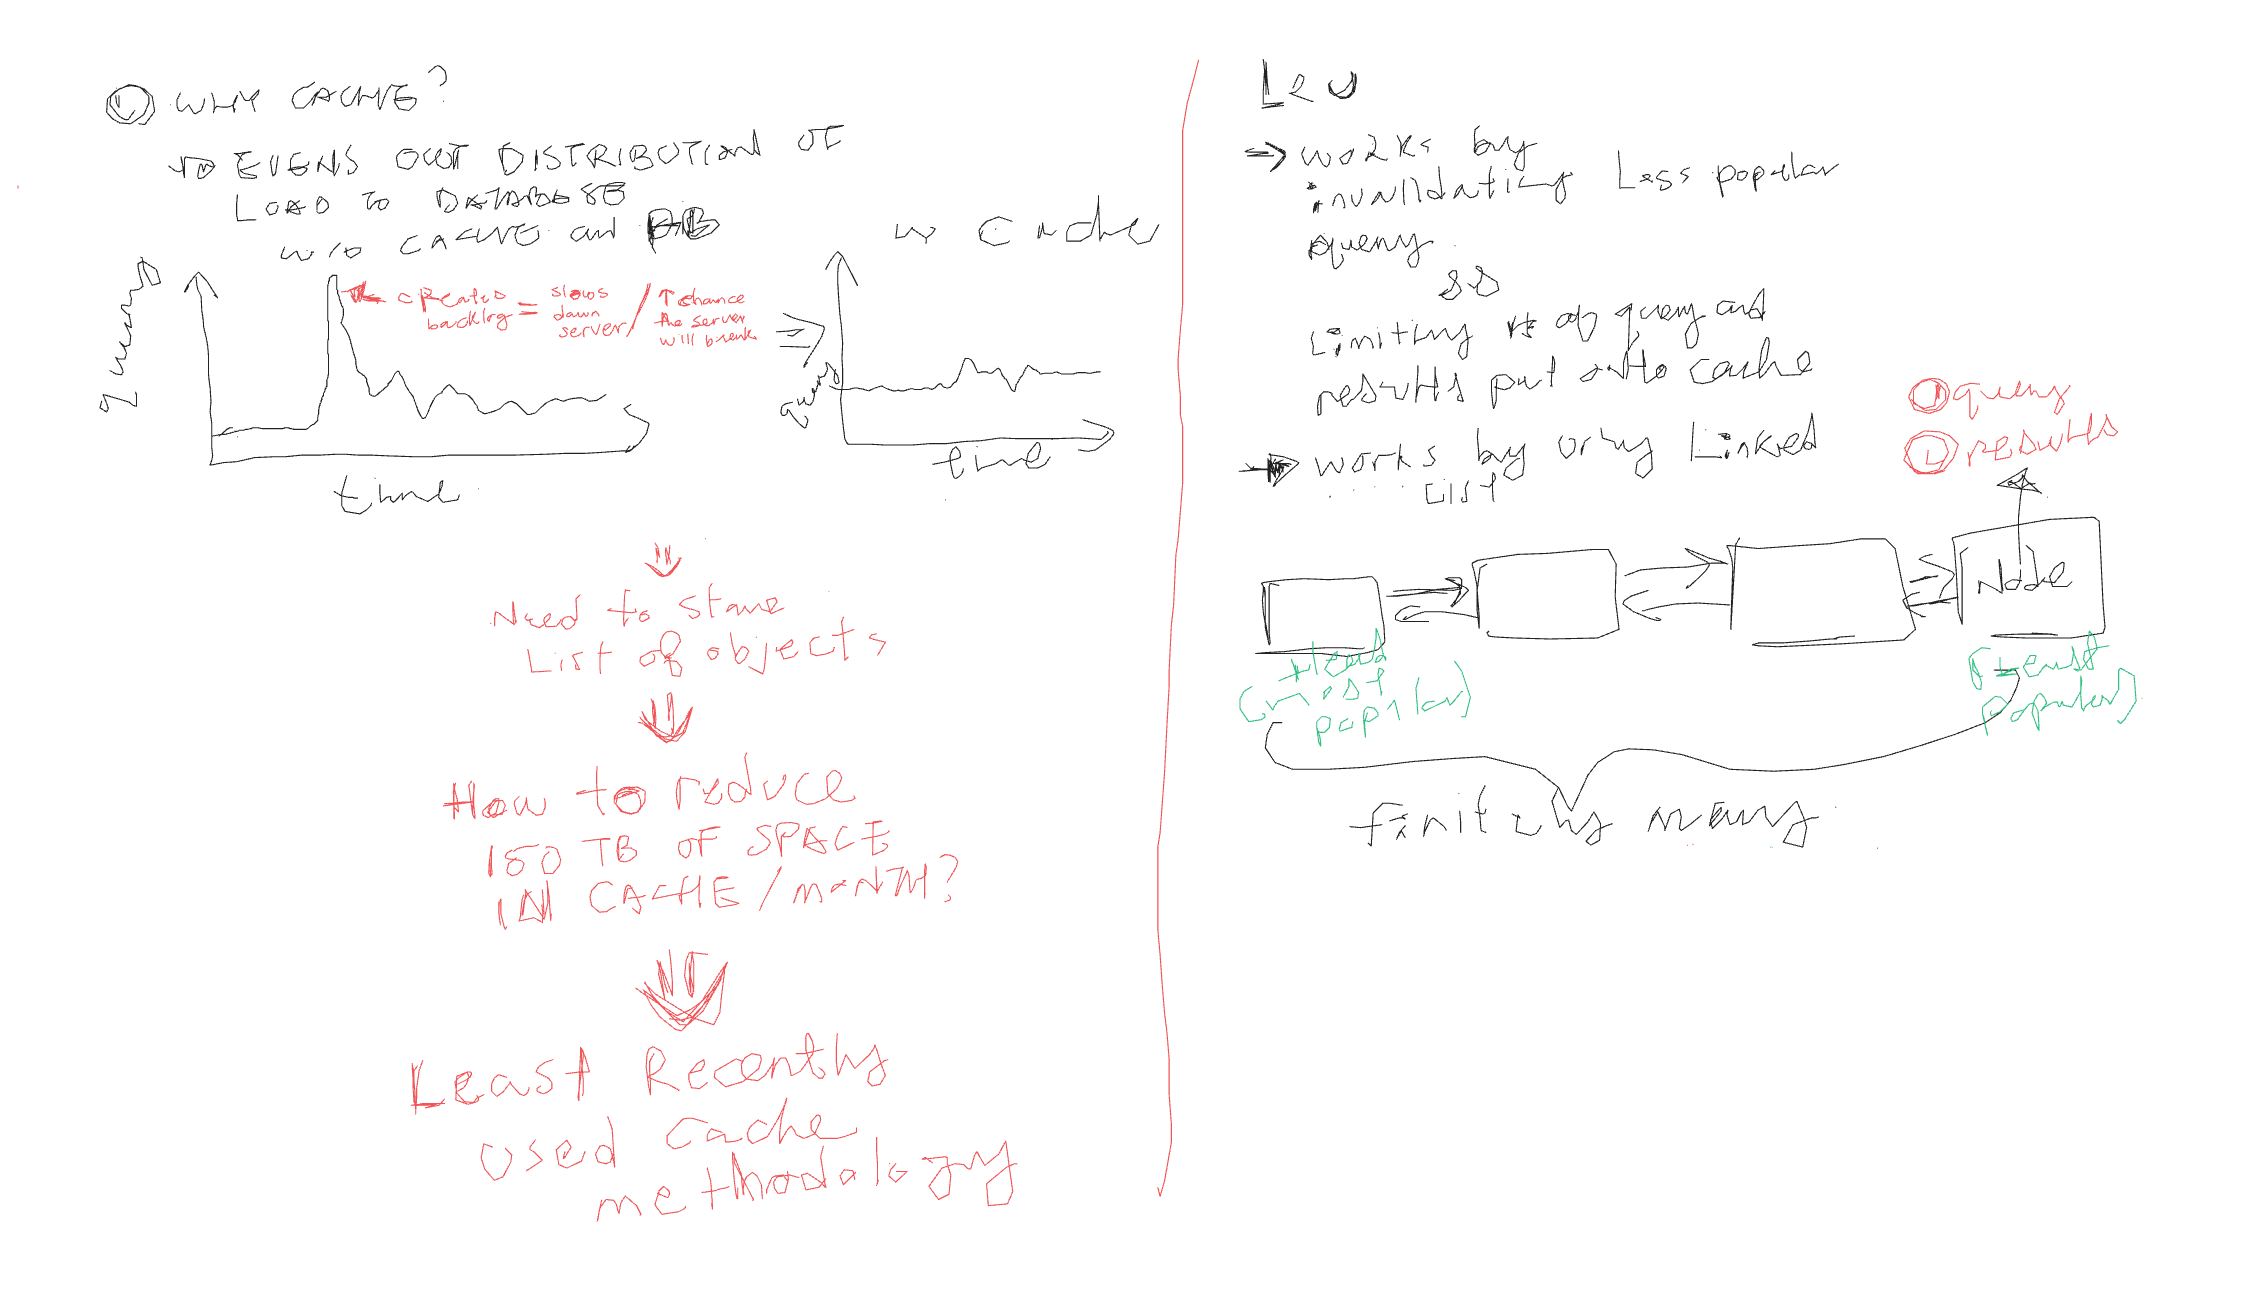 WHY CACHE?
EVENS OUT DISTRIBUTION OF
LOAD TO DATABASE
w/o CACHE and DB
query
creates
backlog
=
slows
down
server
/
↑ chance
the server
will break
time
w cache
query
time
Need to store
List of objects
How to reduce
150 TB OF SPACE
IN CACHE / MONTH?
Least Recently
used cache
methodology
LRU
⇒ works by
invalidating Less popular
query
&&
Limiting # of query and
results put onto cache
→ works by only Linked
List
① query
② results
Node
Head
(most
popular)
(Least
popular)
finitely many